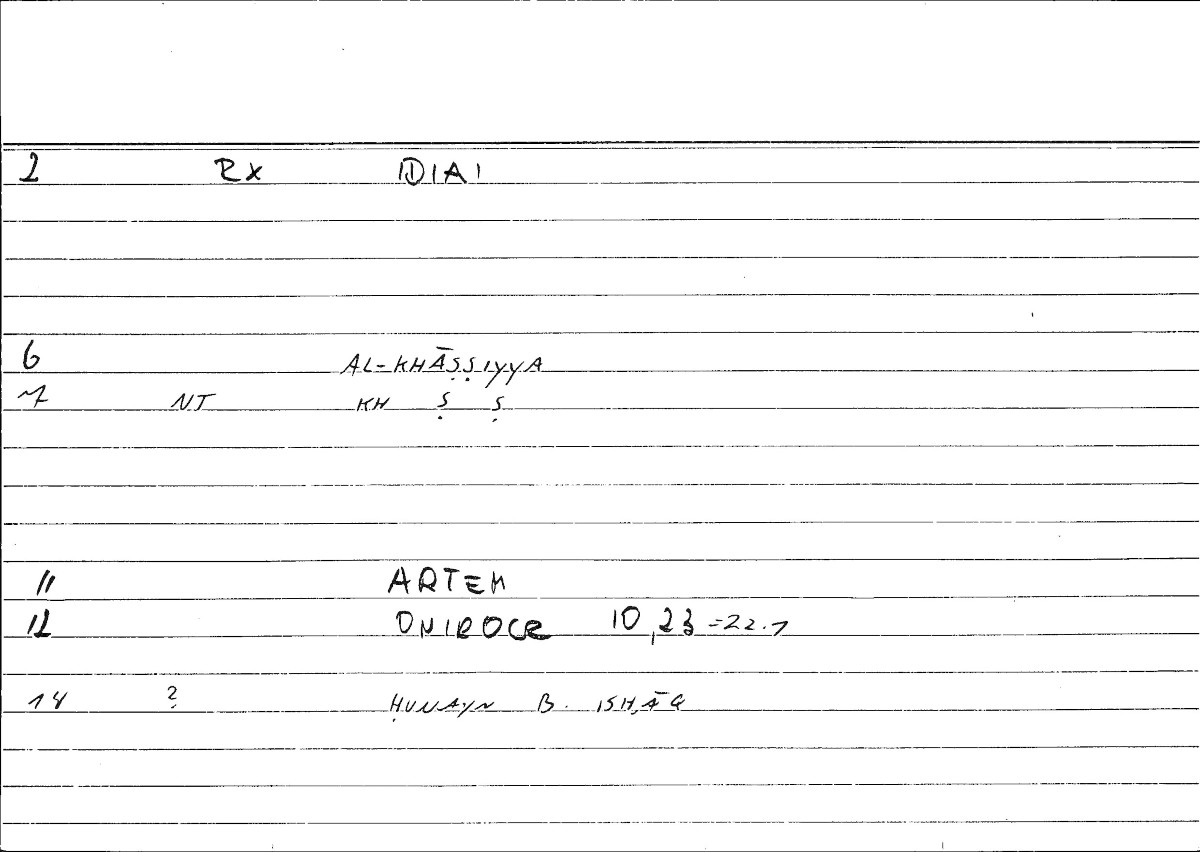 2 RX IDIAI
6 AL-KHĀṢṢIYYA
7 NT KH Ṣ Ṣ
11 ARTEM
12 ONIROCR 10,23 =22.1
14 ? ḤUNAYN B. ISḤĀQ